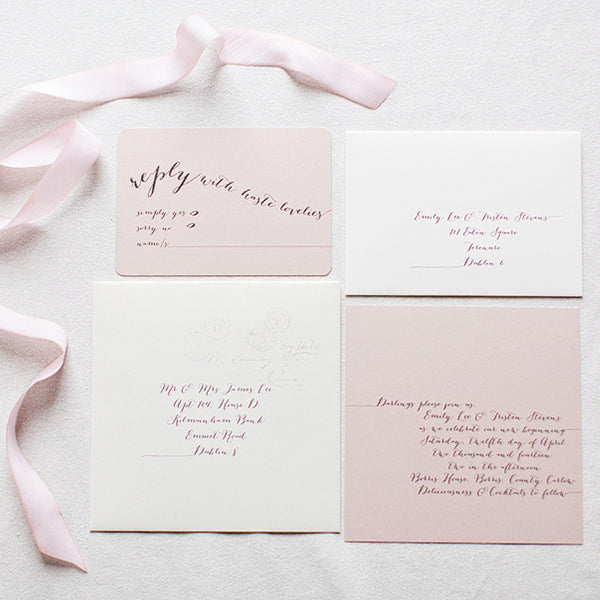 reply with haste lovelies
simply yes
sorry no
name/s
Emily Lee & Tristin Stevens
101 Eaton Square
Terenure
Dublin 6
Mr & Mrs James Lee
Apt 104, House D
Kilmainham Bank
Emmet Road
Dublin 8
Darlings please join us,
Emily Lee & Tristin Stevens
as we celebrate our new beginning
Saturday, twelfth day of April
two thousand and fourteen
two in the afternoon
Borris House, Borris, County Carlow
Deliciousness & Cocktails to follow